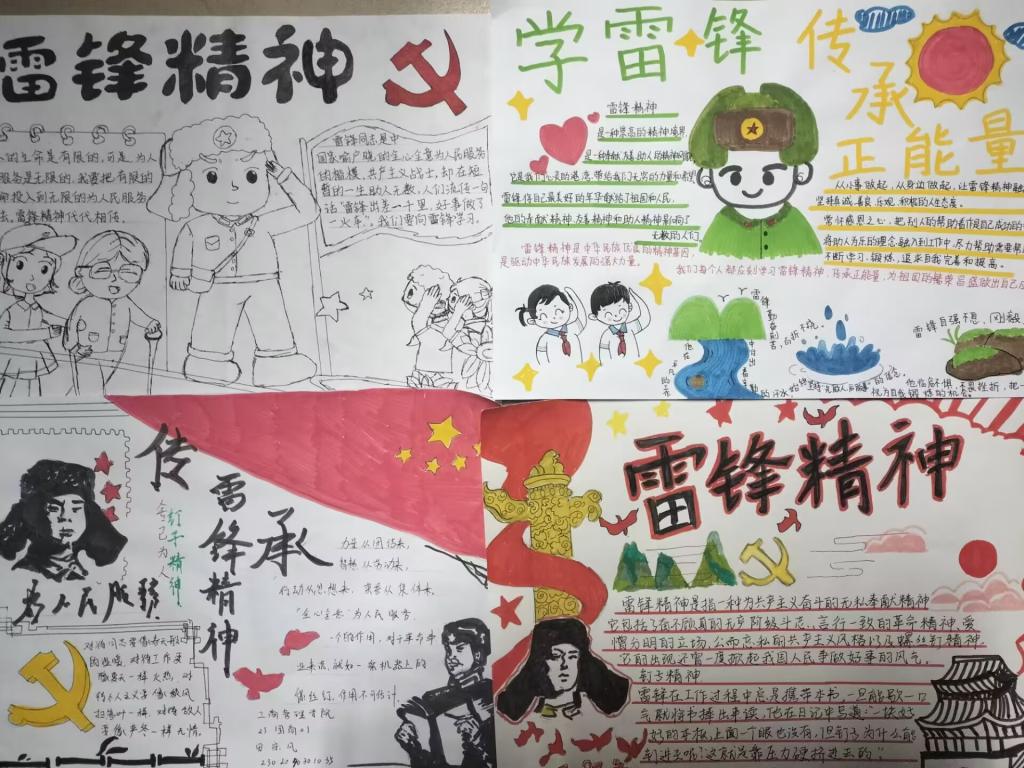 雷锋精神
的生命是有限的,可是,为人
服务是无限的,我要把有限的
命投入到无限的为人民服务
去,雷锋精神代代相传。
雷锋同志是中
国家喻户晓的全心全意为人民服务
的楷模,共产主义战士,却在短
暂的一生助人无数,人们流传一句
话“雷锋出差一千里,好事做了
一火车”。我们要向雷锋学习。
学雷锋
传承正能量
雷锋精神
是一种崇高的精神境界,
雷锋将自己最美好的年华献给了祖国和人民,
他的奉献精神,友善精神和助人精神影响了
无数的人们
雷锋精神是中华民族优良的精神基因,
是驱动中华民族发展的强大力量。
从小事做起,从身边做起,让雷锋精神融
坚持真诚、善良、乐观、积极的人生态度。
常怀感恩之心,把别人的帮助看作自己成功的
将助人为乐的理念融入到工作中,尽力帮助需要帮
不断学习、锻炼,追求自我完善和提高。
我们每个人都应该学习雷锋精神,传承正能量,为祖国的繁荣昌盛做出自己
雷锋自强不息,刚毅
传承
雷锋精神
钉子精神
为人民服务
力量从团结来,
智慧从劳动来,
行动从思想来,荣誉从集体来。
“全心全意”为人民服务
一个人的作用,对于革命事
业来说,就如一架机器上的
螺丝钉,作用不可估计
工商管理学院
对待同志要像春天般的
的温暖,对待工作要
像夏天一样火热,对
待个人主义要像秋风
扫落叶一样,对待敌人
要像严冬一样无情。
雷锋精神
雷锋精神是指一种为共产主义奋斗的无私奉献精神
它包括了奋不顾身的无产阶级斗志、言行一致的革命精神,爱
憎分明的立场、公而忘私的共产主义风格以及螺丝钉精神
它的出现还曾一度掀起我国人民争做好事的风气。
钉子精神
雷锋在工作过程中总是携带本书,一旦能歇一口
气就将书择出来读,他在日记中写道:“一块好
好的木板,上面一个眼也没有,但钉子为什么能
钉进去呢?这就是靠压力硬挤进去的”